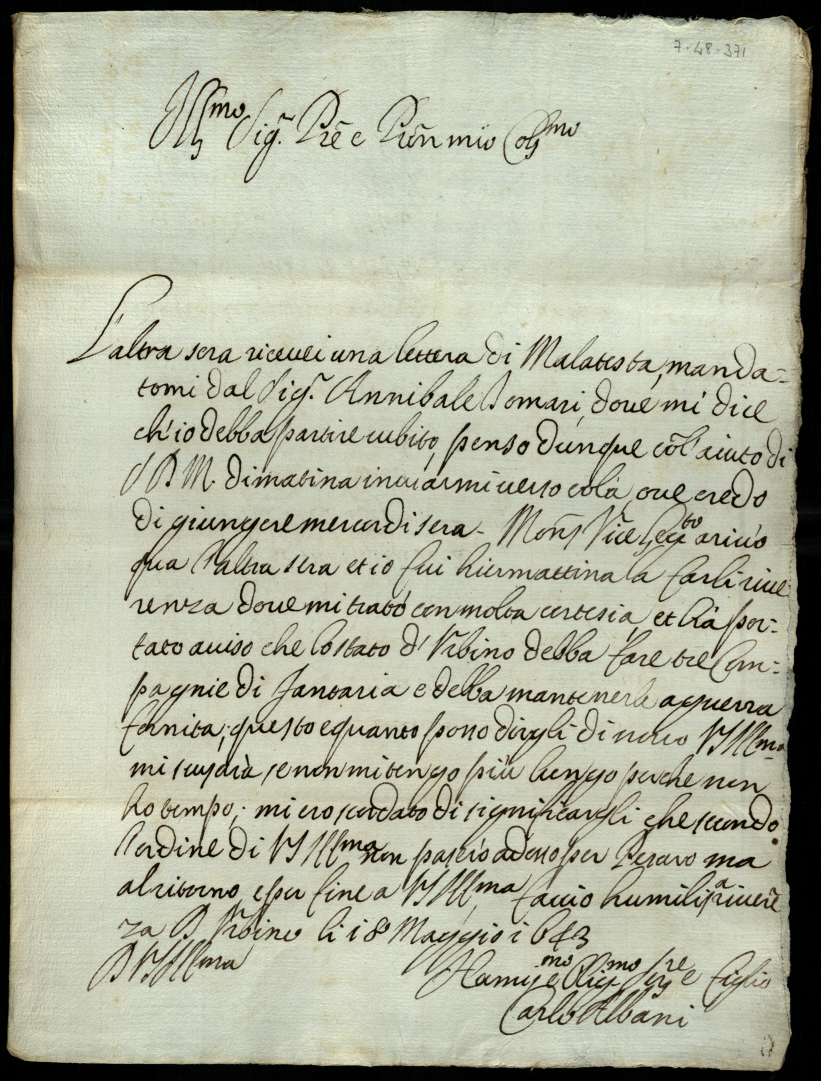 7-48-371
Ill.mo Sig.r P̃re e P̃ron mio Col.mo
L'altra sera riceuei una lettera di Malatesta, manda=
tomi dal Sig.r Annibale doue mi dice
ch'io debba partire subito, penso dunque cõl'aiuto di
S D M. dimatina inuiarmi uerso colà, oue credo
di giungere mercordi sera. Mons.r Vice Leg.to ariuò
qua l'altra sera et io fui hiermattina la farli riue
renza doue mi tratò con molta cortesia, et hà por=
tato auiso che lo stato d'Vrbino debba fare tre Com=
pagnie di fantaria e debba mantenerle a guerra
fornita; questo e quanto posso dirgli di nouo VS Ill.ma
mi scusarà, se non mi tengo più lungo perche non
ho tempo; mi ero scordato di significargli che secondo
l'ordine di VS Ill.ma non passeiò adesso per Pesaro ma
al ritorno, e per fine a VS Ill.ma faccio humiliss.a riuerẽ
za D Vrbino li 18 Maggio 1643
D VS Ill.ma
et Oblig.mo Ser.re e figlio
Carlo Albani